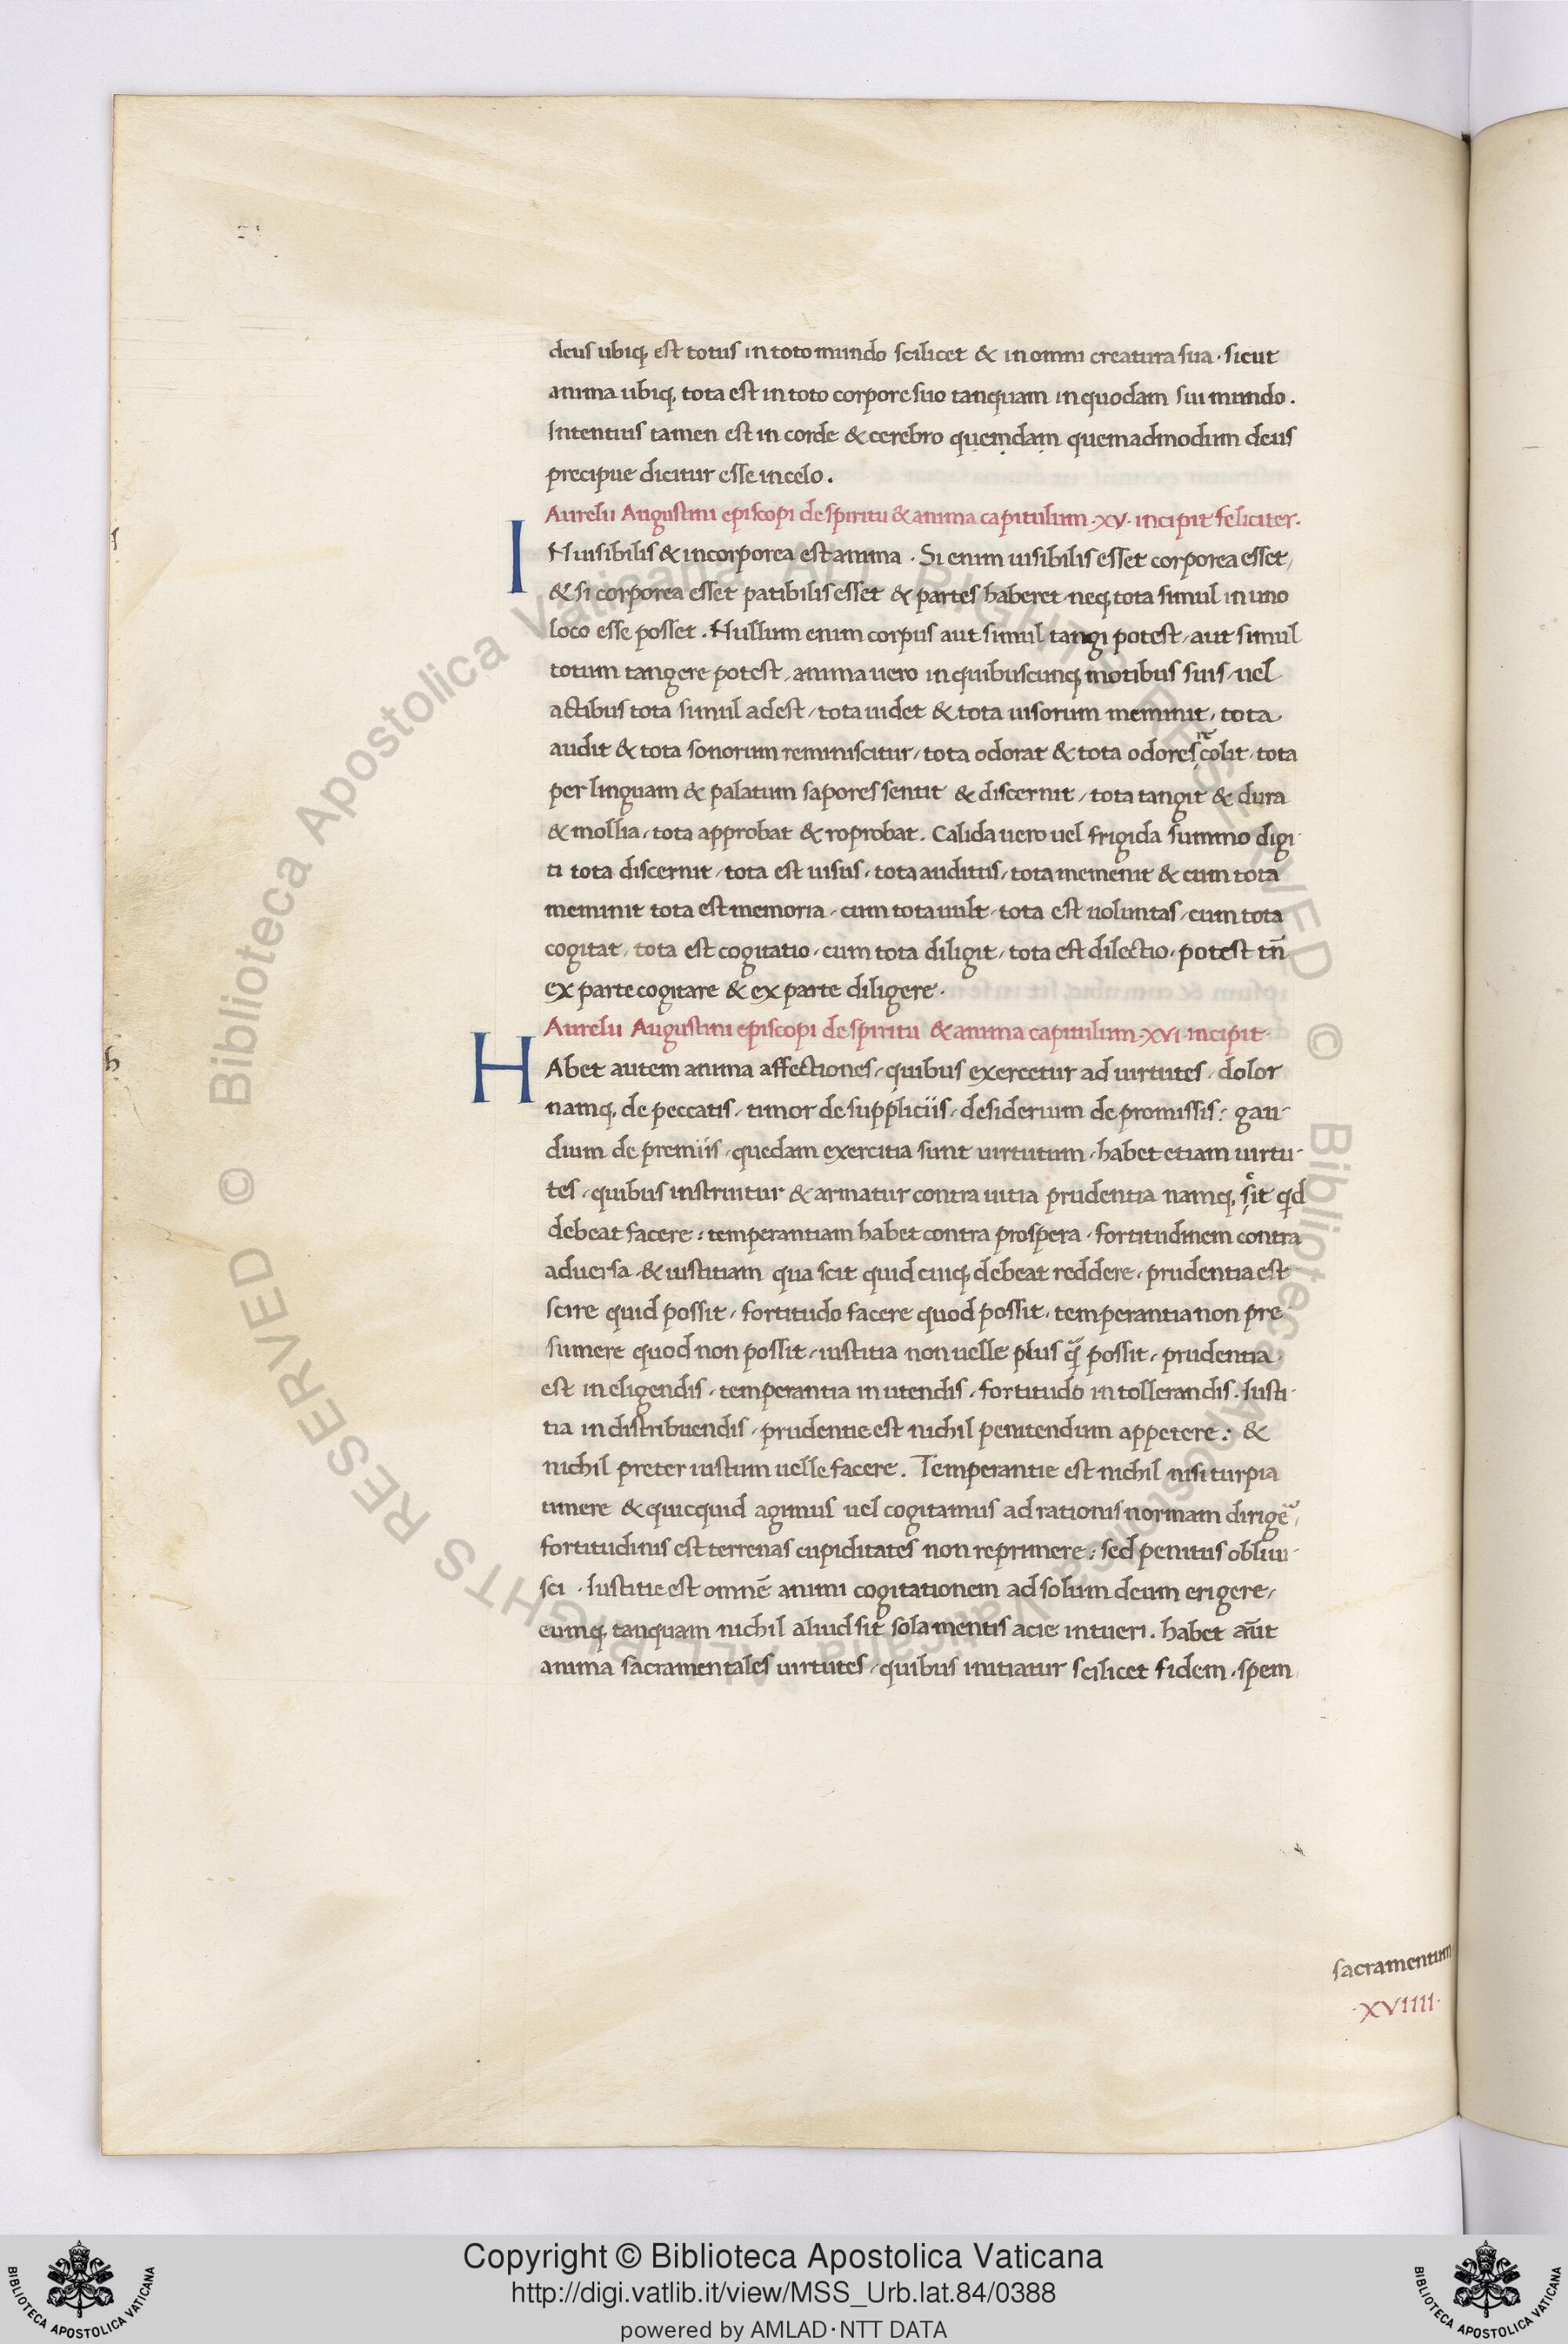 deus ubiq; est totus in toto mundo scilicet & in omni creatura sua · sicut
anima ubiq; tota est in toto corpore suo tanquam in quodam sui mundo.
Intentius tamen est in corde & cerebro quemdam quemadmodum deus
precipue dicitur esse in celo.
Aurelii Augustini episcopi de spiritu & anima capitulum ·XV· incipit feliciter.
INuisibilis & incorporea est anima · Si enim uisibilis esset corporea esset,
& si corporea esset patibilis esset & partes haberet neq; tota simul in uno
loco esse posset. Nullum enim corpus aut simul tangi potest, aut simul
totum tangere potest, anima uero in quibuscunq; motibus suis, uel
actibus tota simul adest, tota uidet & tota uisorum meminit, tota
audit & tota sonorum reminiscitur, tota odorat & tota odores recolit, tota
per linguam & palatum sapores sentit & discernit, tota tangit & dura
& mollia, tota approbat & roprobat. Calida uero uel frigida summo digi-
ti tota discernit, tota est uisus, tota auditus, tota memenit & cum tota
meminit tota est memoria, cum tota uult, tota est uoluntas, cum tota
cogitat, tota est cogitatio, cum tota diligit, tota est dilectio, potest tn̄
ex parte cogitare & ex parte diligere.
Aurelii Augustini episcopi de spiritu & anima capitulum ·XVI· incipit·
HAbet autem anima affectiones, quibus exercetur ad uirtutes, dolor
namq; de peccatis, timor de suppliciis, desiderium de promissis: gau-
dium de premiis, quedam exercitia sunt uirtutum, habet etiam uirtu-
tes, quibus instruitur & armatur contra uitia prudentia namq; scit qd
debeat facere: temperantiam habet contra prospera, fortitudinem contra
aduersa & iustitiam qua scit quid cuiq; debeat reddere, prudentia est
scire quid possit, fortitudo facere quod possit, temperantia non pre
sumere quod non possit, iustitia non uelle plus q̃ possit, prudentia
est in eligendis, temperantia in utendis, fortitudo in tollerandis. Iusti-
tia in distribuendis, prudentie est nichil penitendum appetere: &
nichil preter iustum uelle facere. Temperantie est nichil nisi turpia
timere & quicquid agimus uel cogitamus ad rationis normam dirigẽ,
fortitudinis est terrenas cupiditates non reprimere: sed penitus obliui-
sci · Iustitie est omnē animi cogitationem ad solum deum erigere,
eumq; tanquam nichil aliud sit sola mentis acie intueri. habet aūt
anima sacramentales uirtutes, quibus initiatur scilicet fidem, spem
sacramentum
·XVIIII·
i
h
© Biblioteca Apostolica Vaticana ALL RIGHTS RESERVED © Biblioteca Apostolica Vaticana ALL RIGHTS RESERVED
Copyright © Biblioteca Apostolica Vaticana
http://digi.vatlib.it/view/MSS_Urb.lat.84/0388
powered by AMLAD·NTT DATA
BIBLIOTECA APOSTOLICA VATICANA
BIBLIOTECA APOSTOLICA VATICANA